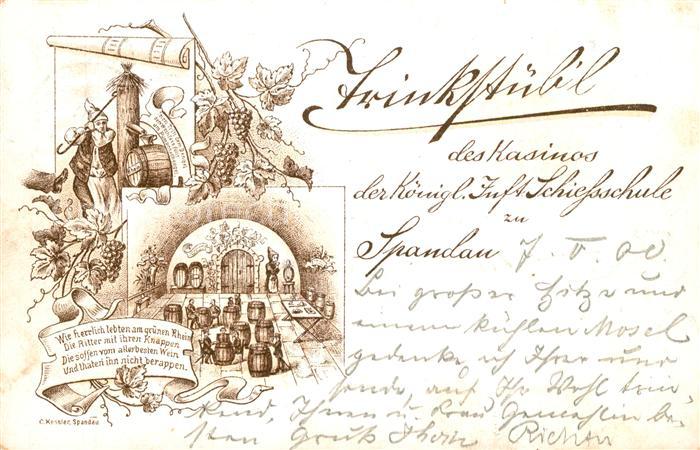 Trinkstüb'l
des Kasinos
der Königl. Inft. Schiessschule
zu
Spandau 7. V. 00.
Bei großer Hitze und
einem kühlen Mosel
gedenke ich Ihrer und
sende, auf Ihr Wohl trin-
kend, Ihnen u. Frau Gemahlin be-
sten Gruß Richter
Wie herrlich lebten am grünen Rhein
Die Ritter mit ihren Knappen
Die soffen vom allerbesten Wein
Und thaten ihn nicht berappen.
C. Kessler, Spandau